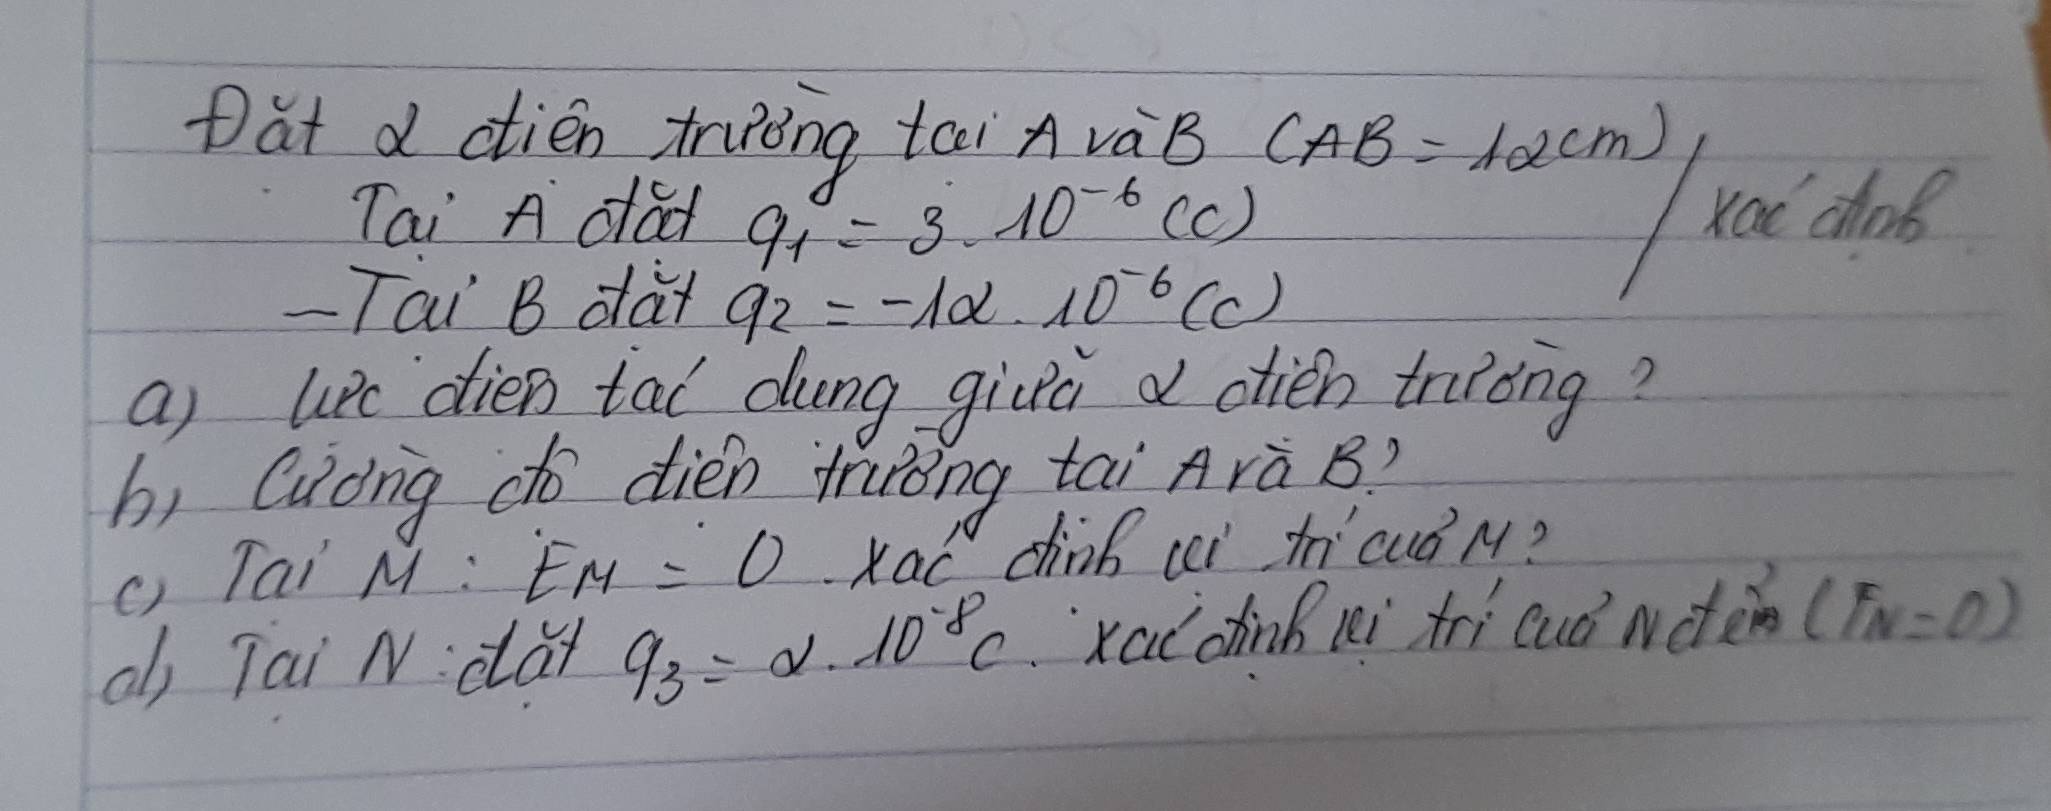 Đặt 2 điện trường tại A và B (AB = 12cm),
Tại A đặt q1 = 3.10⁻⁶ (C) / xác định
- Tại B đặt q2 = -12.10⁻⁶ (C)
a) lực điện tác dụng giữa 2 điện trường?
b) Cường độ điện trường tại A và B?
c) Tại M: EM = 0. xác định vị trí của M?
d) Tại N: đặt q3 = 2.10⁻⁸C. xác định vị trí của N để (FN=0)